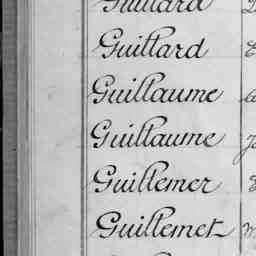 Guillard
Guillard
Guillaume
Guillaume
Guillemer
Guillemet